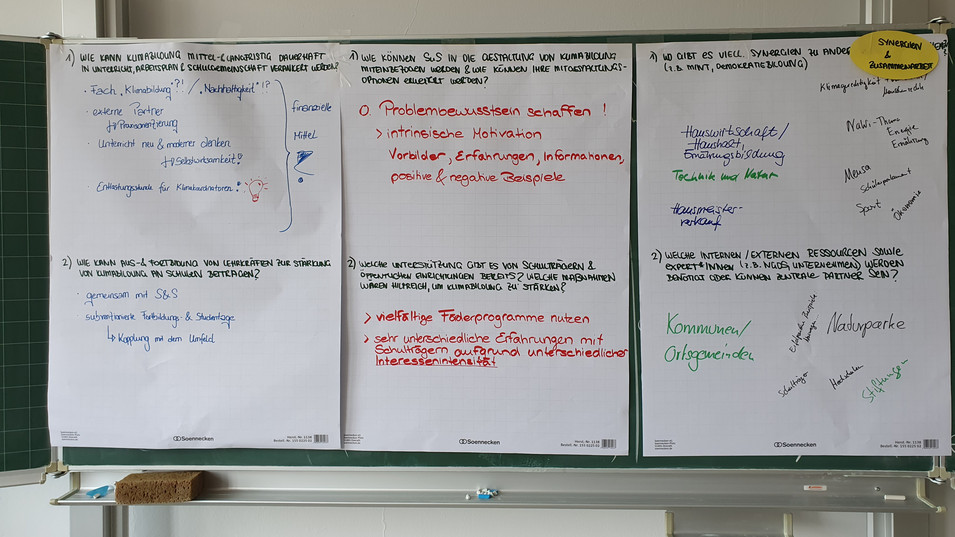 1) WIE KANN KLIMABILDUNG MITTEL- & LANGFRISTIG DAUERHAFT
IN UNTERRICHT, ARBEITSPLAN & SCHULGEMEINSCHAFT VERANKERT WERDEN?
· Fach „Klimabildung"?! / „Nachhaltigkeit"!?
· externe Partner
↳ Praxisorientierung
· Unterricht neu & moderner denken
↳ Selbstwirksamkeit!
Entlastungsstunde für Klimakoordinatoren!
finanzielle
Mittel
2) WIE KANN AUS- & FORTBILDUNG VON LEHRKRÄFTEN ZUR STÄRKUNG
VON KLIMABILDUNG AN SCHULEN BEITRAGEN?
· gemeinsam mit S&S
subventionierte Fortbildungs- & Studientage
↳ Kopplung mit dem Umfeld
Soennecken
1) WIE KÖNNEN SuS IN DIE GESTALTUNG VON KLIMABILDUNG
MITEINBEZOGEN WERDEN & WIE KÖNNEN IHRE MITGESTALTUNGS-
OPTIONEN ERWEITERT WERDEN?
0. Problembewusstsein schaffen !
> intrinsische Motivation
Vorbilder, Erfahrungen, Informationen,
positive & negative Beispiele
2) WELCHE UNTERSTÜTZUNG GIBT ES VON SCHULTRÄGERN &
ÖFFENTLICHEN EINRICHTUNGEN BEREITS? WELCHE MAßNAHMEN
WAREN HILFREICH, UM KLIMABILDUNG ZU STÄRKEN?
> vielfältige Föderprogramme nutzen
> sehr unterschiedliche Erfahrungen mit
Schulträgern aufgrund unterschiedlicher
Interessenintensität
Soennecken
1) WO GIBT ES VIELL. SYNERGIEN ZU ANDE
(Z.B. MINT, DEMOKRATIEBILDUNG)
SYNERGIEN
&
ZUSAMMENARBEIT
Klimagerechtigkeit
Menschenrechte
Hauswirtschaft/
Haushalt,
Ernährungsbildung
Technik und Natur
Hausmeister-
verkauf
NaWi-Thema
Energie
Ernährung
Mensa
Schülerparlament
Sport
Ökonomie
2) WELCHE INTERNEN / EXTERNEN RESSOURCEN SOWIE
EXPERT*INNEN (Z.B. NGOS, UNTERNEHMEN) WERDEN
BENÖTIGT ODER KÖNNEN ZENTRALE PARTNER SEIN?
Kommunen/
Ortsgemeinden
Naturparke
Schulträger
Hochschulen
Stiftungen
Soennecken